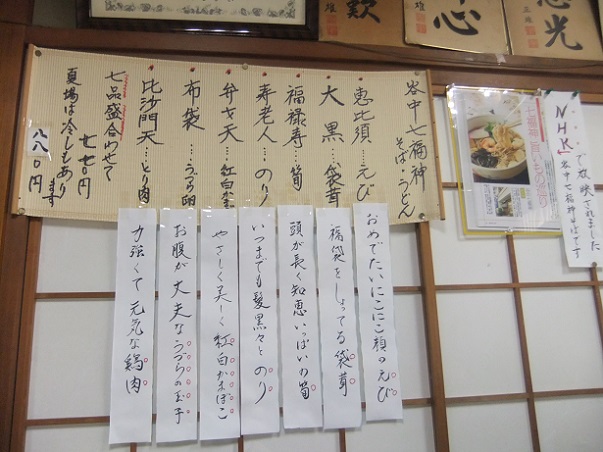 谷中七福神
そば・うどん
恵比須…えび
大黒…袋茸
福禄寿…筍
寿老人…のり
弁才天…紅白かま
布袋…うづら卵
毘沙門天…とり肉
七品盛合わせて
七七〇円
夏場は冷しもあります
八八〇円
おめでたいにこにこ顔のえび
福袋をしょってる袋茸
頭が長く知恵いっぱいの筍
いつまでも髪黒々とのり
やさしく美しく紅白かまぼこ
お腹が大丈夫なうづらの玉子
力強くて元気な鶏肉
NHKで放映されました
谷中七福神そばです
歎
心
恵光